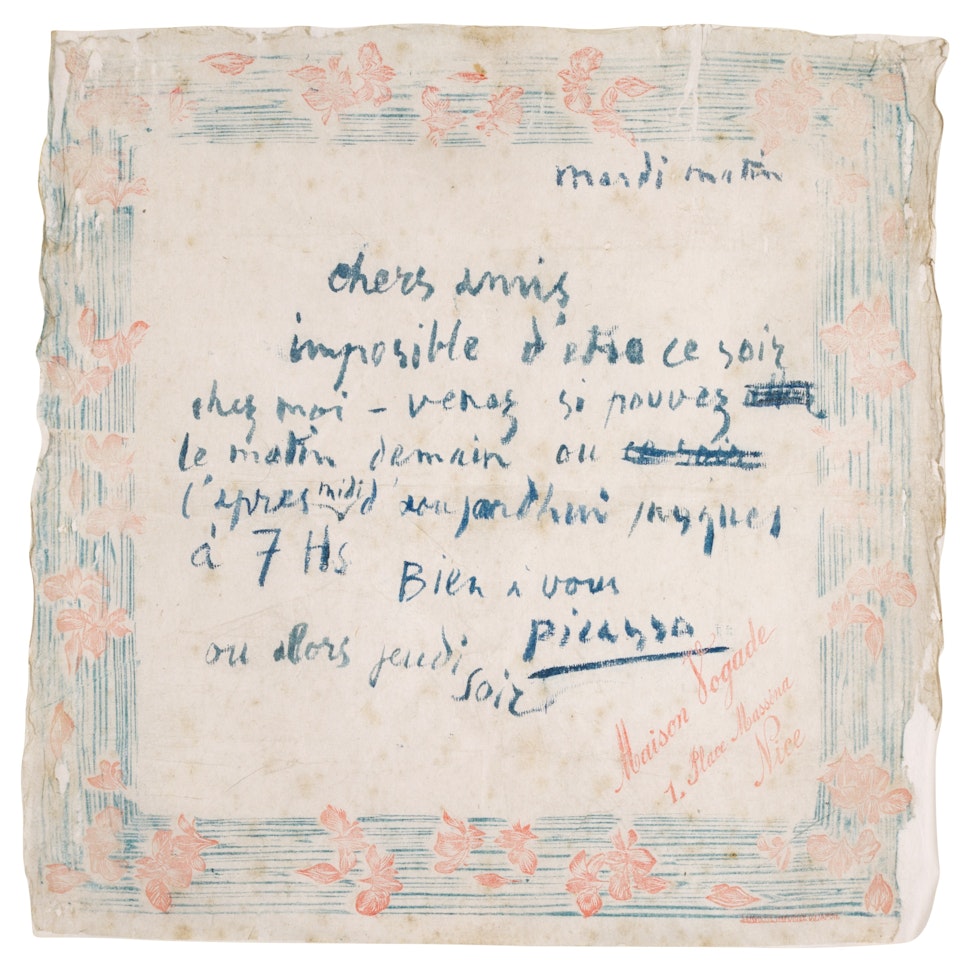 mardi matin
chers amis
imposible d'etre ce soir
chez moi - venez si pouvez
le matin demain ou ce soir
l'apres midi d'aujardhui jusques
à 7 Hs
Bien à vous
picasso
ou alors jeudi
soir
Maison Vogade
1, Place Massina
Nice